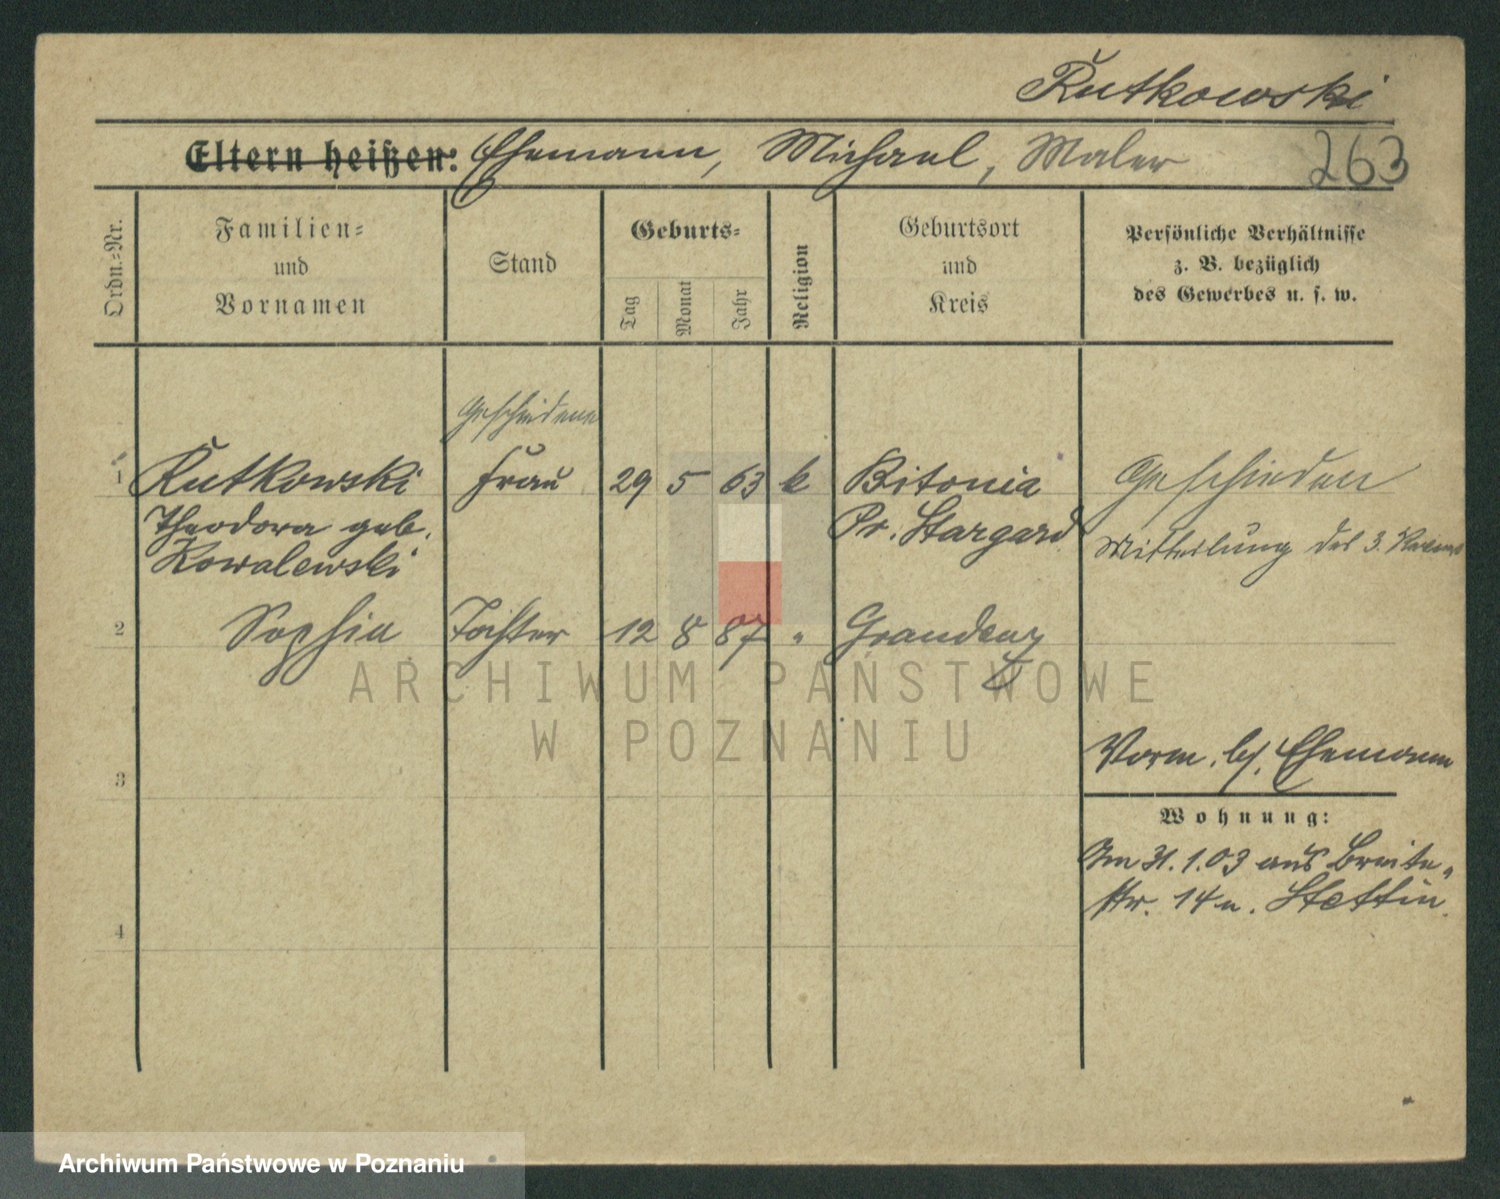 Rutkowski
Eltern heißen: Ehemann, Michael, Maler
263
Ordn.-Nr.
Familien-
und
Vornamen
Stand
Geburts-
Tag
Monat
Jahr
Religion
Geburtsort
und
Kreis
Persönliche Verhältnisse
z. B. bezüglich
des Gewerbes u. s. w.
Geschiedene
1 Rutkowski Frau 29 5 63 k Bitonia Geschieden
Theodora geb. Pr. Stargard Mitteilung des 3.
Kowalewski
2 Sophia Tochter 12 8 87 " Graudenz
ARCHIWUM PAŃSTWOWE
W POZNANIU
Vorm. bf. Ehemann
3
Wohnung:
Am 31.1.03 aus Breite-
str. 14 n. Stettin.
4
Archiwum Państwowe w Poznaniu